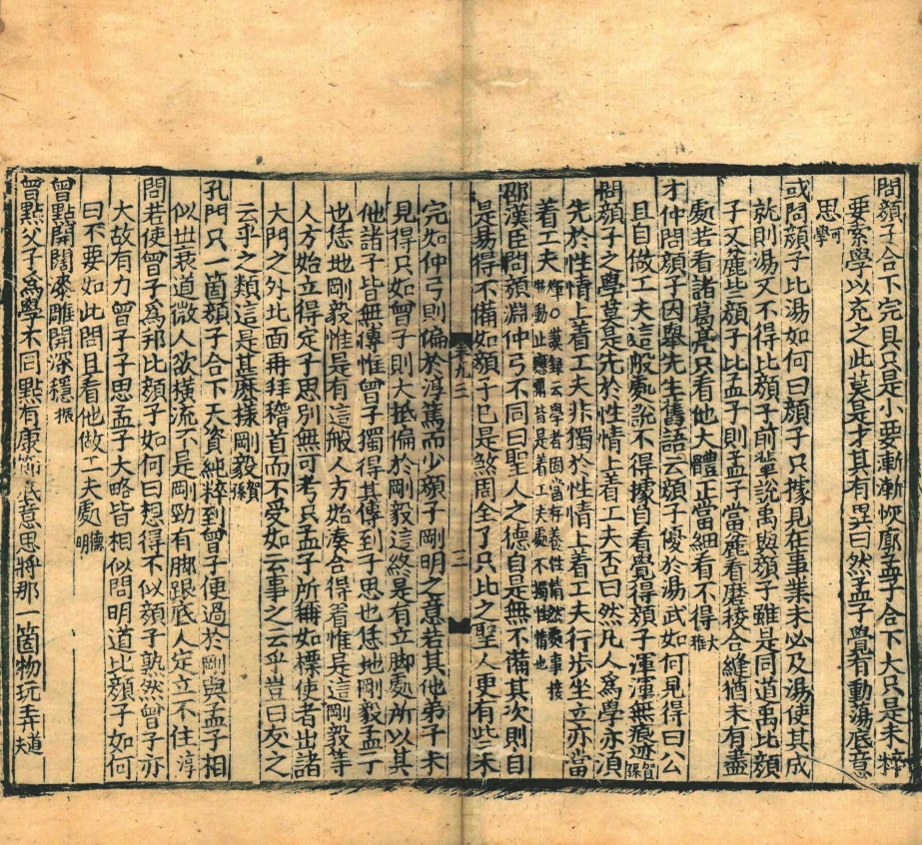 問顔子合下完具只是小要漸漸恢廓孟子合下大只是未粹
要索學以充之此莫是才具有異曰然孟子覺有動蕩底意
思可學
或問顔子比湯如何曰顔子只據見在事業未必及湯使其成
就則湯又不得比顔子前輩說禹與顔子雖是同道禹比顔
子又麄比顔子比孟子則孟子當麄看磨稜合縫猶未有盡
處若看諸葛亮只看他大體正當細看不得大雅
才仲問顔子因舉先生舊語云顔子優於湯武如何見得曰公
且自做工夫這般處說不得據自看覺得顔子渾渾無痕迹賀孫
問顔子之學莫是先於性情上着工夫否曰然凡人爲學亦須
先於性情上着工夫非獨於性情上着工夫行步坐立亦當
着工夫煇○蓑録云學者固當存養性情然處事接物動止應酬皆是着工夫處不獨性情也
邵漢臣問顔淵仲弓不同曰聖人之德自是無不備其次則自
是易得不備如顔子已是煞周全了只比之聖人更有些未
完如仲弓則偏於淳篤而少顔子剛明之意若其他弟子未
見得只如曾子則大抵偏於剛毅這終是有立脚處所以其
他諸子皆無傳惟曾子獨得其傳到子思也恁地剛毅孟子
也恁地剛毅惟是有這般人方始湊合得着惟是這剛毅等
人方始立得定子思別無可考只孟子所稱如摽使者出諸
大門之外北面再拜稽首而不受如云事之云乎豈曰友之
云乎之類這是甚麽樣剛毅賀孫
孔門只一箇顔子合下天資純粹到曾子便過於剛與孟子相
似世衰道微人欲橫流不是剛勁有脚跟底人定立不住淳
問若使曾子爲邦比顔子如何曰想得不似顔子熟然曾子亦
大故有力曾子子思孟子大略皆相似問明道比顔子如何
曰不要如此問且看他做工夫處德明
曾點開闊漆雕開深穩振
曾點父子爲學不同點有康節底意思將那一箇物玩弄道夫